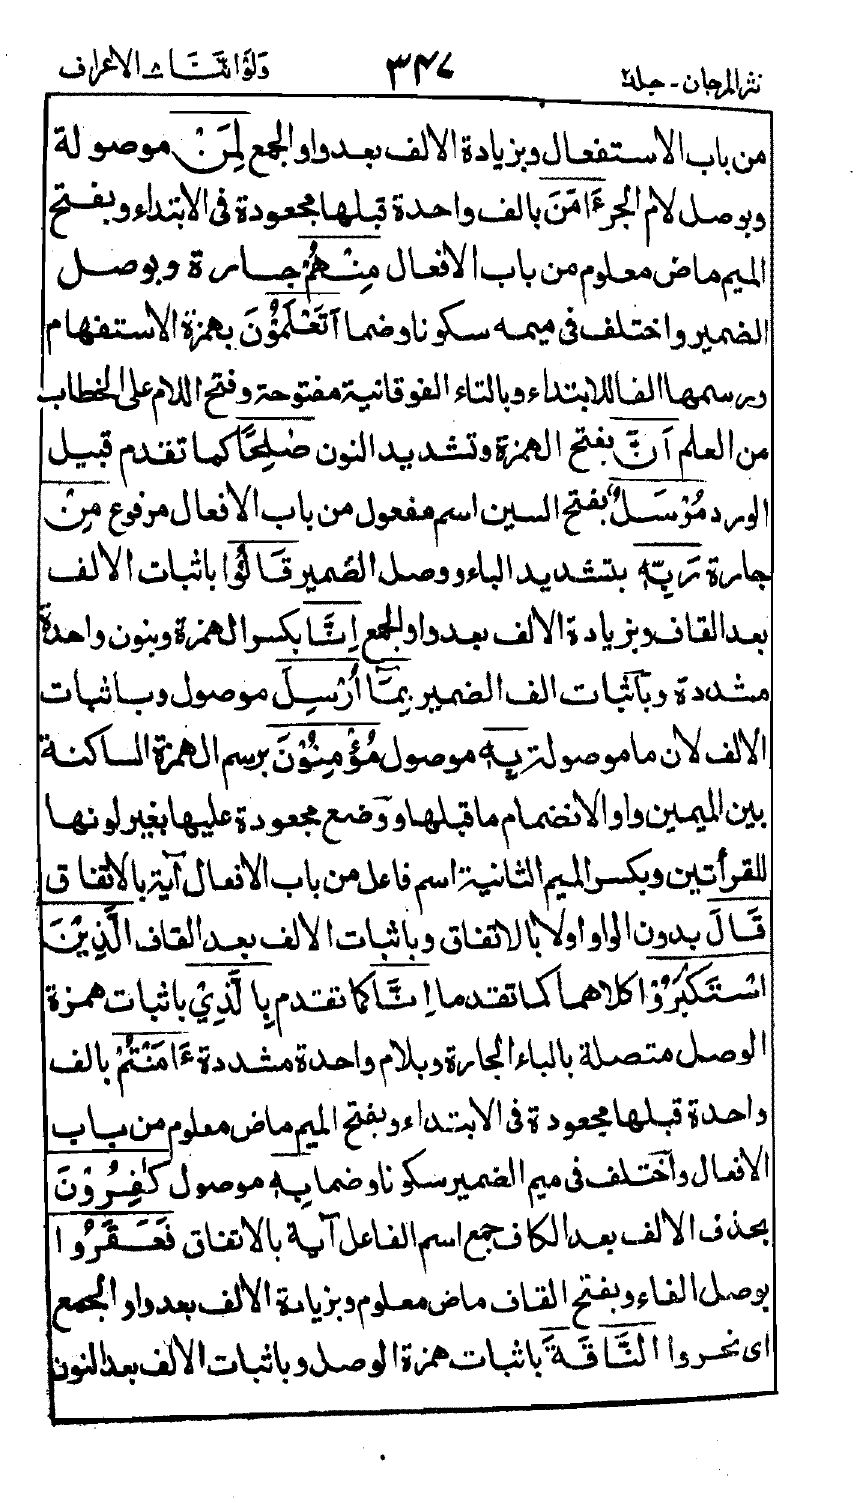 نثر المرجان - جلد ٢ ٣٤٧ ولواننا ٨ الاعراف
من باب الاستفعال وبزيادة الالف بعد واو الجمع لِمَنْ موصولة
وبوصل لام الجر ءَامَنَ بالف واحدة قبلها مجعودة فى الابتداء وبفتح
الميم ماض معلوم من باب الافعال مِنْهُمْ جارة وبوصل
الضمير واختلف فى ميمه سكونا وضما اَتَعْلَمُوْنَ بهمزة الاستفهام
ورسمها الفا للابتداء وبالتاء الفوقانية مفتوحة وفتح اللام على الخطاب
من العلم اَنَّ بفتح الهمزة وتشديد النون صٰلِحًا كما تقدم قبيل
الورد مُرْسَلٌ بفتح السين اسم مفعول من باب الافعال مرفوع مِنْ
جارة رَبِّهٖ بتشديد الباء ووصل الضمير قَالُوْا باثبات الالف
بعد القاف وبزيادة الالف بعد واو الجمع اِنَّا بكسر الهمزة وبنون واحدة
مشددة وباثبات الف الضمير بِمَا اُرْسِلَ موصول وباثبات
الالف لان ما موصولة بِهٖ موصول مُؤْمِنُوْنَ برسم الهمزة الساكنة
بين الميمين واو الانضمام ما قبلها ووضع مجعودة عليها بغير لونها
للقرأتين وبكسر الميم الثانية اسم فاعل من باب الافعال آية بالاتفاق
قَالَ بدون الواو اولا بالاتفاق وباثبات الالف بعد القاف الَّذِيْنَ
اسْتَكْبَرُوْا كلاهما كما تقدما اِنَّا كما تقدم بِالَّذِيْ باثبات همزة
الوصل متصلة بالباء الجارة وبلام واحدة مشددة ءَامَنْتُمْ بالف
واحدة قبلها مجعودة فى الابتداء وبفتح الميم ماض معلوم من باب
الافعال واختلف فى ميم الضمير سكونا وضما بِهٖ موصول كٰفِرُوْنَ
بحذف الالف بعد الكاف جمع اسم الفاعل آية بالاتفاق فَعَقَرُوا
بوصل الفاء وبفتح القاف ماض معلوم وبزيادة الالف بعد واو الجمع
اى نحروا النَّاقَةَ باثبات همزة الوصل وباثبات الالف بعد النون